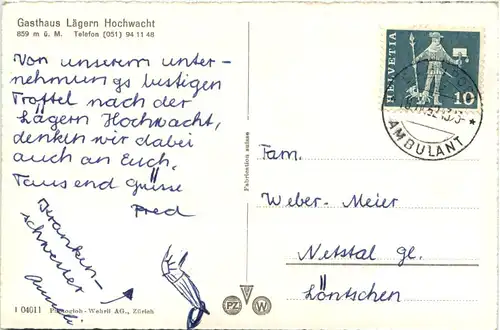 Gasthaus Lägern Hochwacht
859 m ü. M. Telefon (051) 94 11 48
Von unserem unter-
nehmungs lustigen
Troffel nach der
Lägern Hochwacht,
denken wir dabei
auch an Euch.
Tausend Grüsse
Fred
Kranken-
schwester
1 04011 Photoglob-Wehrli AG., Zürich
PZ W
Fabrication suisse
HELVETIA
10
AMBULANT
Fam.
Weber-Meier
Netstal gl.
Löntschen